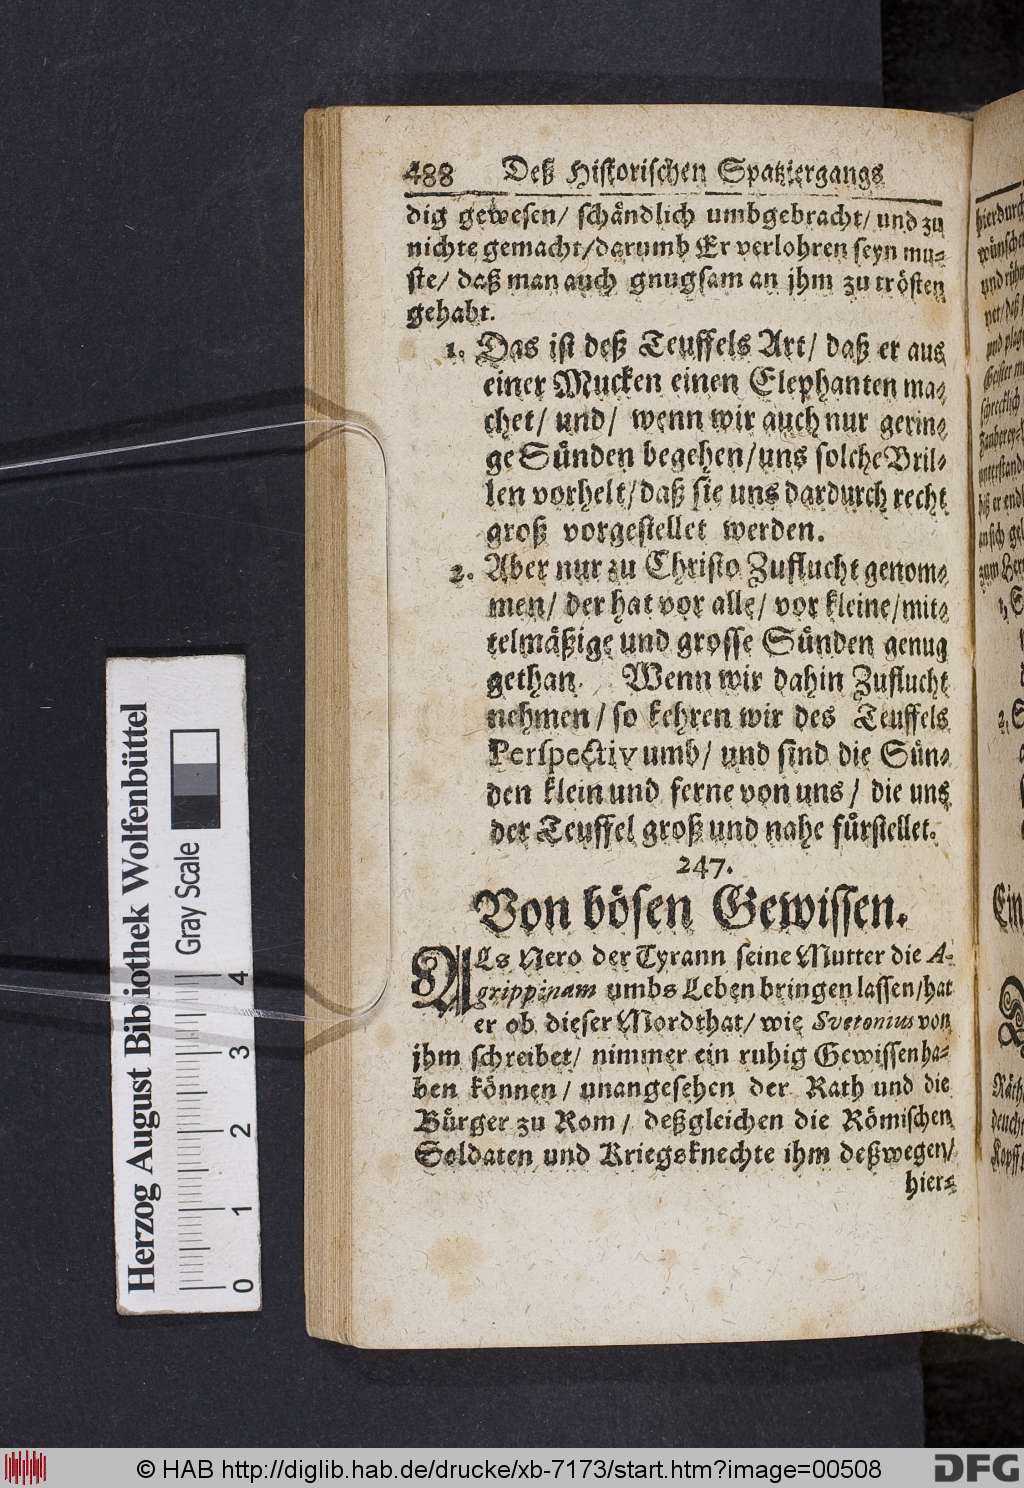 488 Deß Historischen Spatziergangs
dig gewesen/ schändlich umbgebracht/ und zu
nichte gemacht/darumb Er verlohren seyn mu-
ste/ daß man auch gnugsam an jhm zu trösten
gehabt.
1. Das ist deß Teuffels Art/ daß er aus
einer Mucken einen Elephanten ma-
chet/ und/ wenn wir auch nur gerin-
ge Sünden begehen/uns solche Bril-
len vorhelt/daß sie uns dardurch recht
groß vorgestellet werden.
2. Aber nur zu Christo Zuflucht genom-
men/ der hat vor alle/ vor kleine/mit-
telmäßige und grosse Sünden genug
gethan. Wenn wir dahin Zuflucht
nehmen/ so kehren wir des Teuffels
Perspectiv umb/ und sind die Sün-
den klein und ferne von uns/ die uns
der Teuffel groß und nahe fürstellet.
247.
Von bösen Gewissen.
ALs Nero der Tyrann seine Mutter die A-
grippinam umbs Leben bringen lassen/hat
er ob dieser Mordthat/ wie Svetonius von
jhm schreibet/ nimmer ein ruhig Gewissen ha-
ben können/ unangesehen der Rath und die
Bürger zu Rom/ deßgleichen die Römischen
Soldaten und Kriegsknechte ihm deßwegen/
hier-
hierdurch
und
zum
Ein
Kopff
Herzog August Bibliothek Wolfenbüttel
Gray Scale
0 1 2 3 4
© HAB http://diglib.hab.de/drucke/xb-7173/start.htm?image=00508
DFG